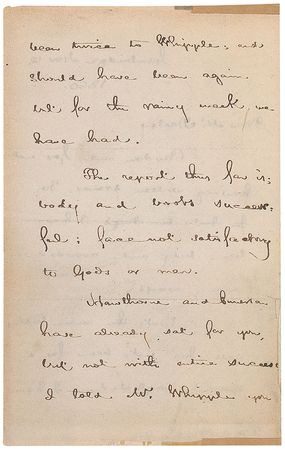 been twice to Whipple; and
should have been again
but for the rainy week, we
have had.
The report thus far is:
body and boots success-
ful; face not satisfactory
to Gods or men.
Hawthorne and Emerson
have already sat for you,
but not with entire success
I told Mr. Whipple you